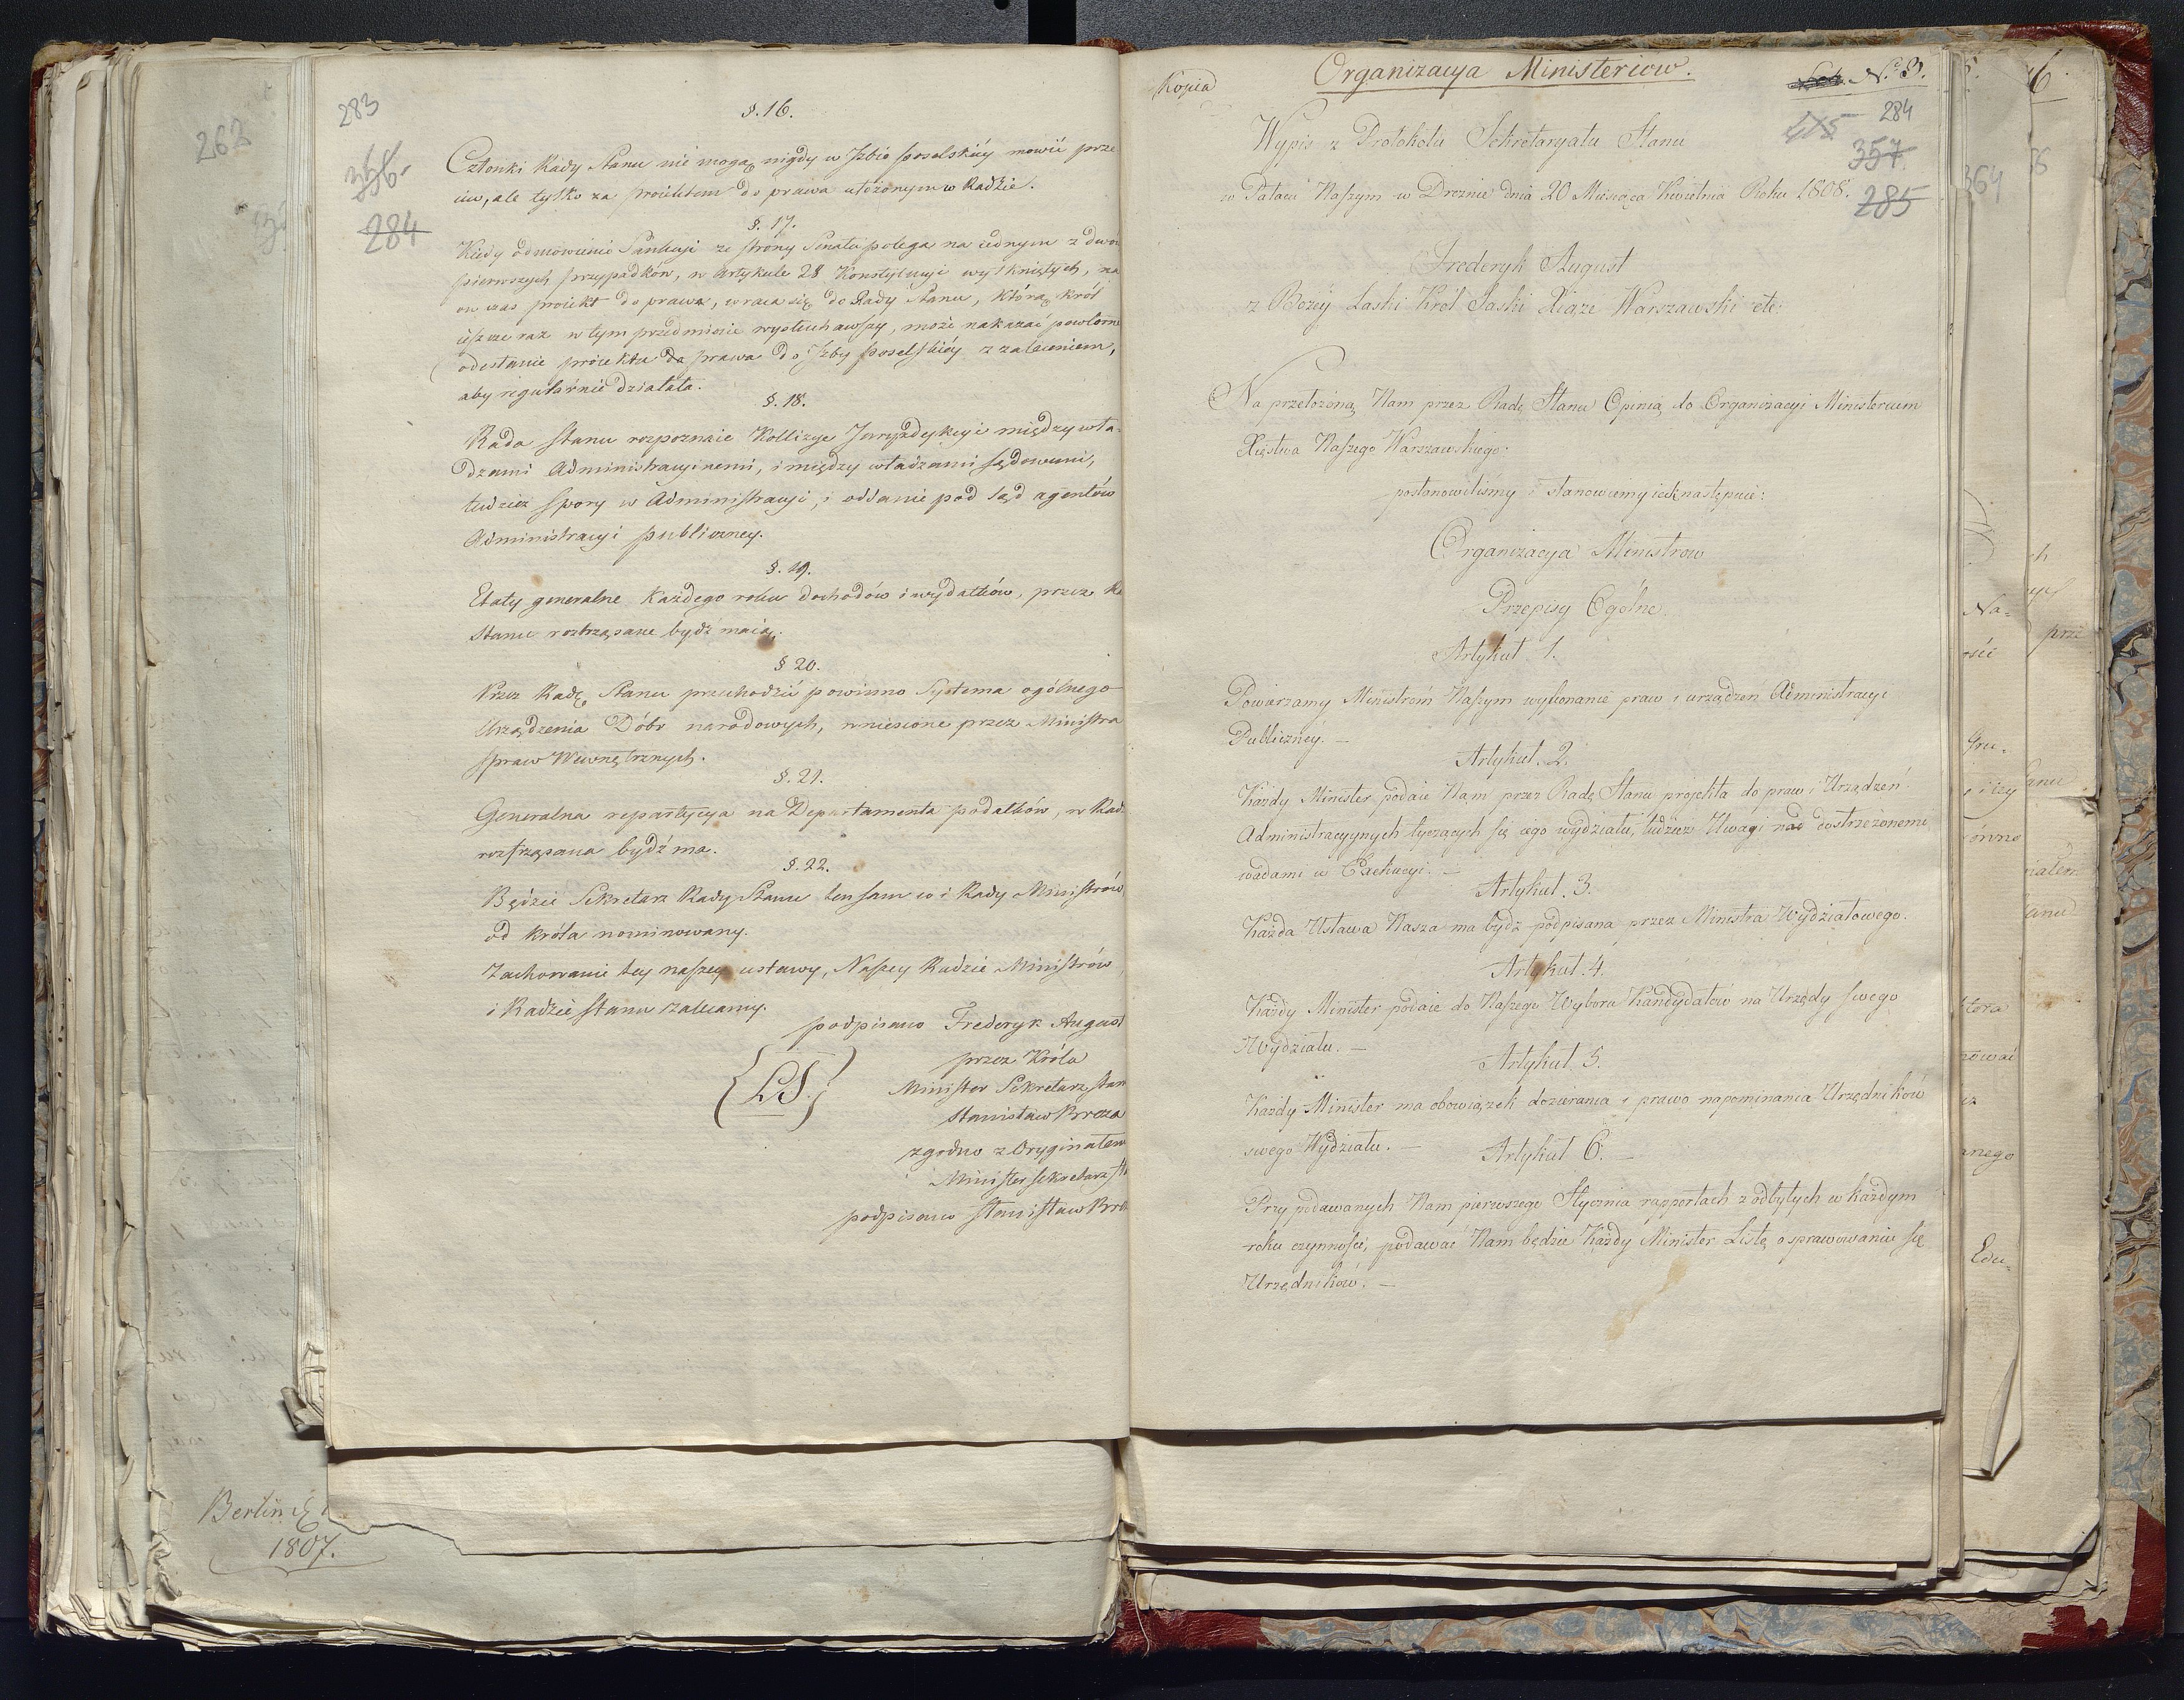 262
Berlin d.
1807.
283
356
284
§. 16.
Członki Rady Stanu nie mogą nigdy w Izbie poselskiéy mowić prze
iw, ale tylko za proiektem do prawa ułożonym w Radzie.
§. 17.
Kiedy odmówienie Sankcyi ze strony Senatu polega na iednym z dwóch
pierwszych przypadków, w artykule 28 Konstytucyi wytkniętych, na
on czas proiekt do prawa, wraca się do Rady Stanu, którą Król
ieszcze raz w tym przedmiocie wysłuchawszy, może nakazać powtórne
odesłanie proiektu do prawa do Izby poselskiéy z zaleceniem,
aby regularnie działała.
§. 18.
Rada Stanu rozpoznaie Kollizye Juryzdykcyi między wła-
dzami Administracyinemi, i między władzami sądowemi,
tudzież spory w Administracyi, i oddanie pod sąd agentów
Administracyi publiczney.
§. 19.
Etaty generalne każdego roku dochodów i wydatków, przez Ra
Stanu roztrząsane bydź maią.
§ 20.
Przez Radę Stanu przechodzić powinno Systema ogólnego
Urządzenia Dóbr narodowych, wniesione przez Ministra
Spraw Wewnętrznych.
§. 21.
Generalna repartycya na Departamenta podatków, w Rad
roztrząsana bydź ma.
§. 22.
Będzie Sekretarz Rady Stanu ten sam co i Rady Ministrów
od Króla nominowany.
Zachowanie tey naszey ustawy, Naszey Radzie Ministrów
i Radzie Stanu zalecamy.
podpisano Frederyk August
przez Króla
(LS.)
Minister Sekretarz Stan
Stanisław Breza
zgodno z Oryginałem
Minister Sekretarz St
podpisano Stanisław Bre
Kopia
Organizacya Ministeriow.
N. 3.
284
415
357
285
Wypis z Protokołu Sekretaryatu Stanu
w Pałacu Naszym w Dreznie dnia 20 Miesiąca Kwietnia Roku 1808.
Frederyk August
z Bożéy Łaski Król Saski Xiąże Warszawski etc:
Na przełożoną Nam przez Radę Stanu Opinią do Organizacyi Ministerium
Xięstwa Naszego Warszawskiego;
postanowiliśmy i stanowiemy iak następuie:
Organizacya Ministrow
Przepisy Ogólne.
Artykuł 1.
Powierzamy Ministróm Naszym wykonanie praw i urządzeń Administracyi
Publicznéy. —
Artykuł. 2.
Każdy Minister podaie Nam przez Radę Stanu projekta do praw i Urządzeń
Administracyynych tyczących się iego wydziału, tudzież Uwagi nad dostrzeżonemi
wadami w Exekucyi. —
Artykuł. 3.
Każda Ustawa Nasza ma bydź podpisana przez Ministra Wydziałowego.
Artykuł. 4.
Każdy Minister podaie do Naszego Wyboru Kandydatów na Urzędy swego
Wydziału. —
Artykuł. 5.
Każdy Minister ma obowiązek dozierania i prawo napominania Urzędników
swego Wydziału. —
Artykuł 6. —
Przy podawanych Nam pierwszego Stycznia rapportach z odbytych w każdym
roku czynności, podawać Nam będzie Każdy Minister Listę o sprawowaniu się
Urzędników. —
364
Na-
ość
Gru-
ówno
tora
nować
anego
Edu-
6
prze
anu